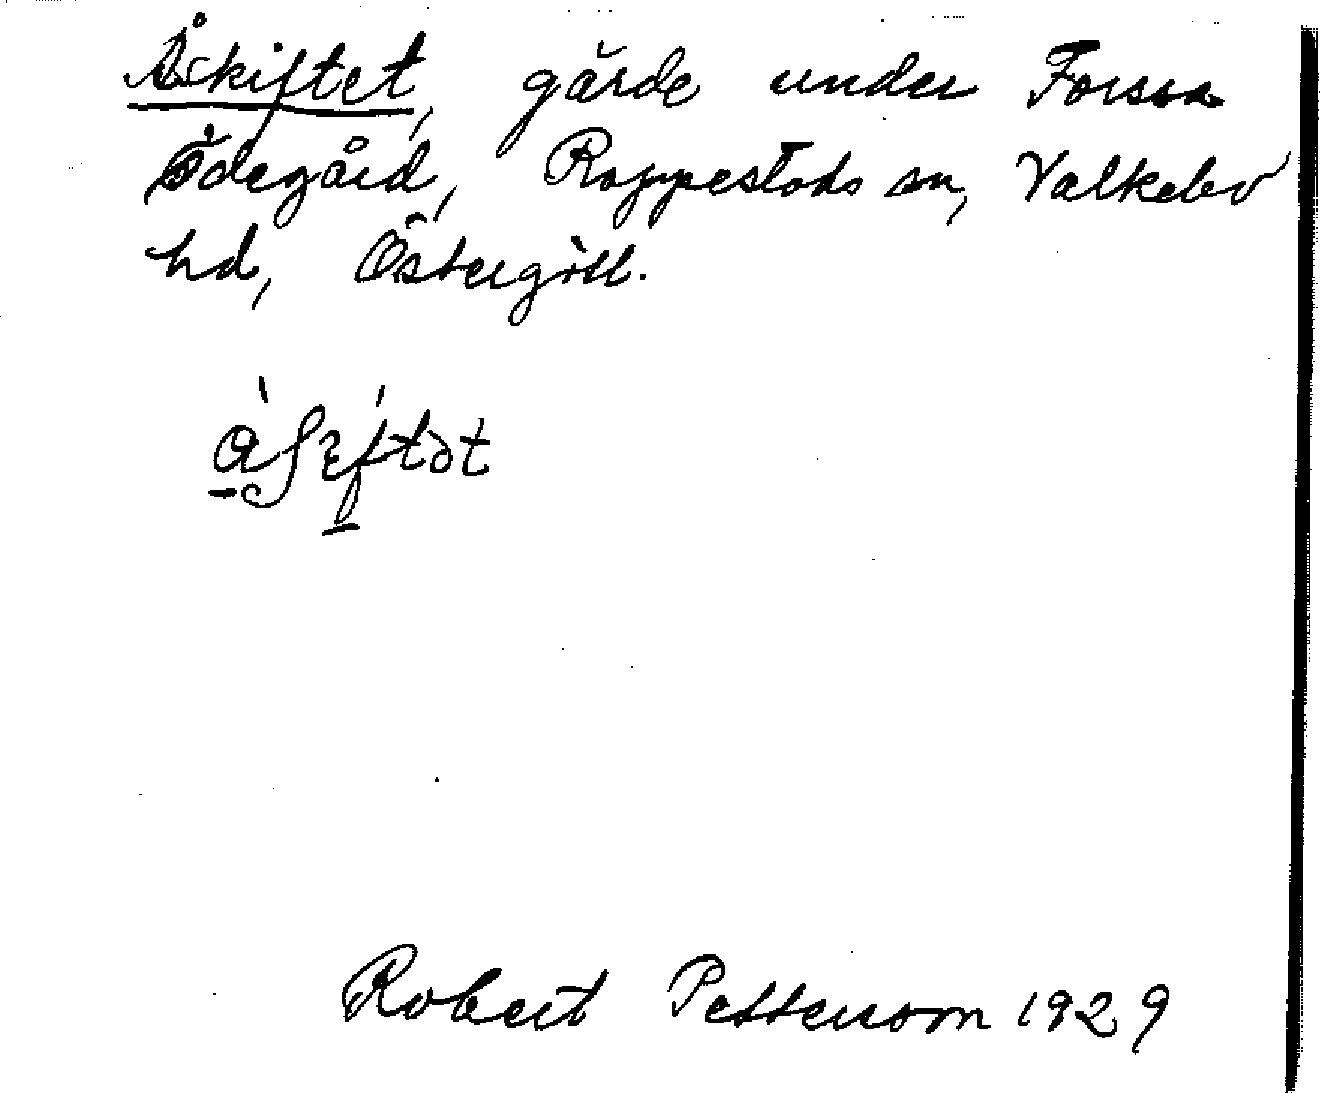 Åskiftet, gärde under Forssa
Ödegård, Rappestads sn, Valkebo
hd, Östergötl.
Robert Pettersson 1929